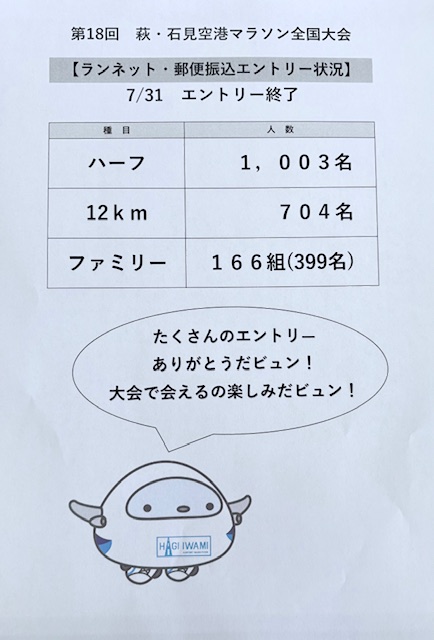 第18回　萩・石見空港マラソン全国大会
【ランネット・郵便振込エントリー状況】
7/31　エントリー終了
種　目　人　数
ハーフ　１，００３名
12ｋｍ　７０４名
ファミリー　１６６組(399名)
たくさんのエントリー
ありがとうだビュン！
大会で会えるの楽しみだビュン！
HAGI IWAMI